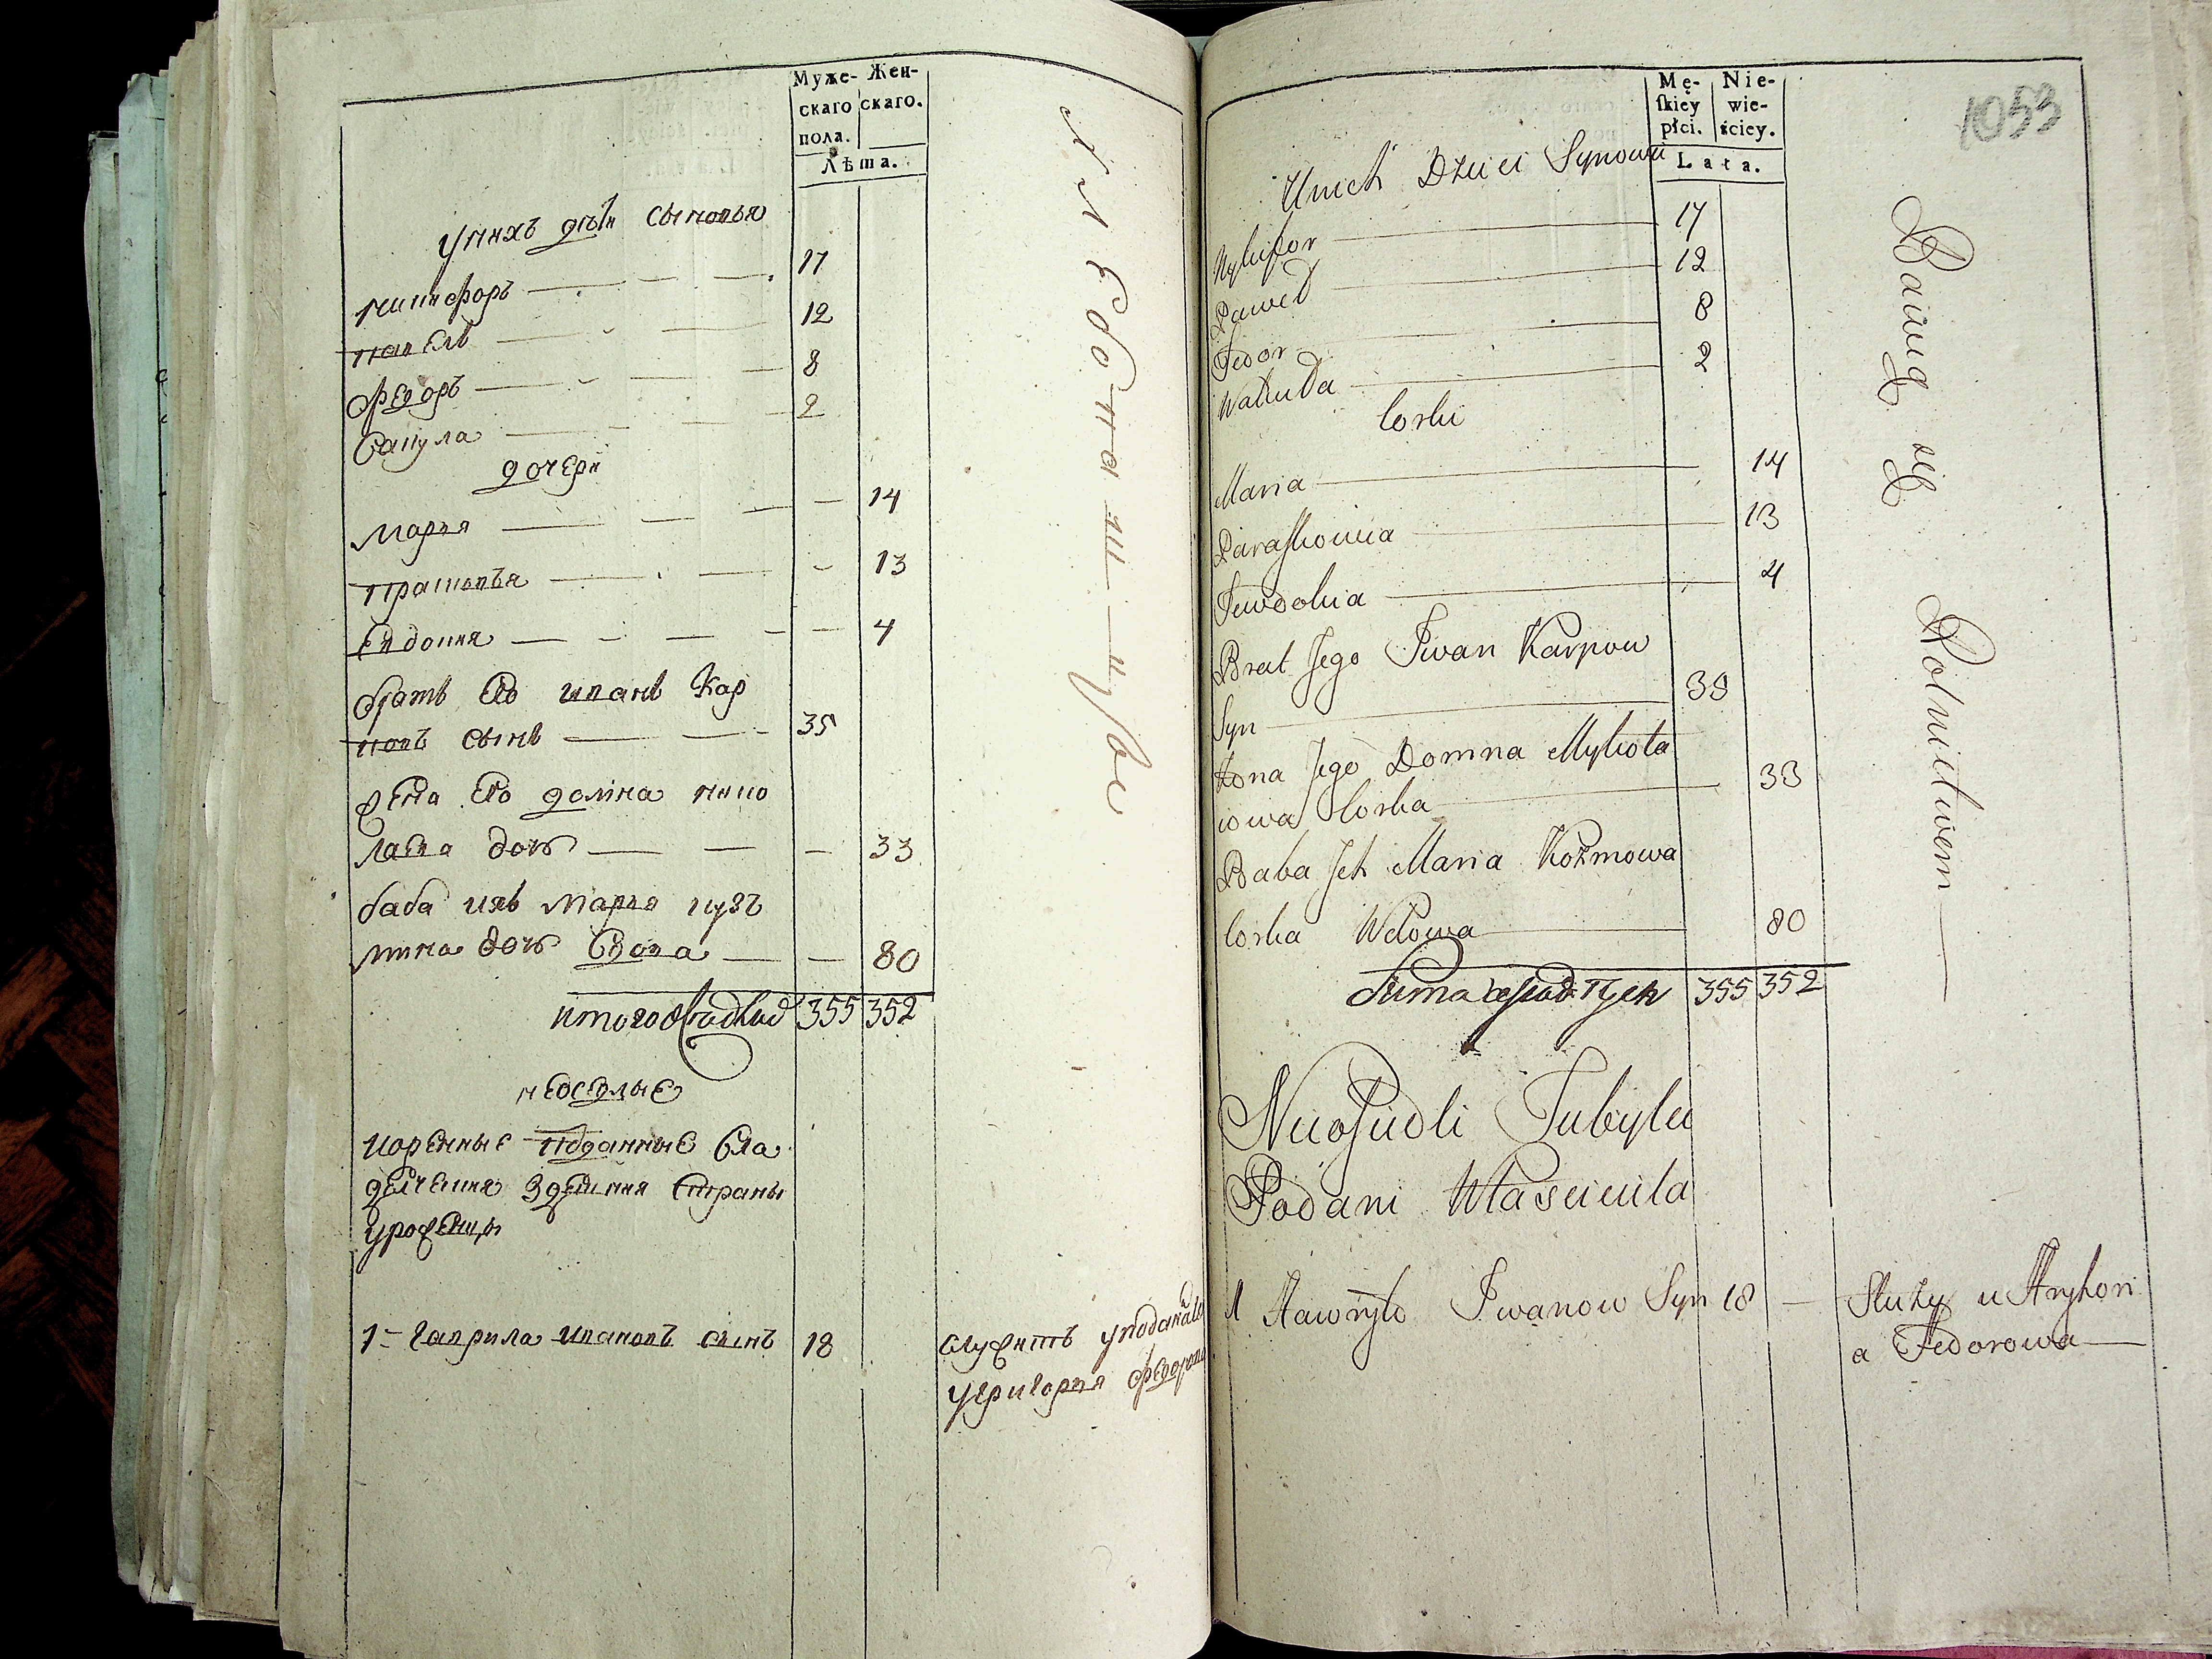 Муже- Жен-
скаго скаго.
пола.
Лѣта.
У нихъ дѣти сыновья
никифоръ 17
павелъ 12
федоръ 8
вакула 2
дочери
марья 14
прасковья 13
Евдокия 4
братъ Его иванъ Кар
повъ сынъ 35
жена Его домна нико
лаева дочь 33
баба ихъ марья кузь
мина дочь вдова 80
итого 355 352
неоседлые
коренные подданные вла
дельческия здешния страны
уроженцы
1 гаврила ивановъ сынъ 18
служитъ
у григорья федорова
1053
Mę- Nie-
ſkiey wie-
płci. ściey.
Lata.
Unich Dzieci Synowie
Nykifor 17
Paweł 12
Fedor 8
Wakuła 2
Corki
Maria 14
Paraſkowiia 13
Jewdokia 4
Brat Jego Iwan Karpow
Syn 35
Żona Jego Domna Mykoła
iowa Corka 33
Baba Jch Maria Kożmowa
Corka Wdowa 80
Suma 355 352
Nieosiedli Tubylcy
Podani Własciciela
1 Hawryło Iwanow Syn 18
Służy u Hryhori
a Fedorowa
Bawią się Rolnictwem